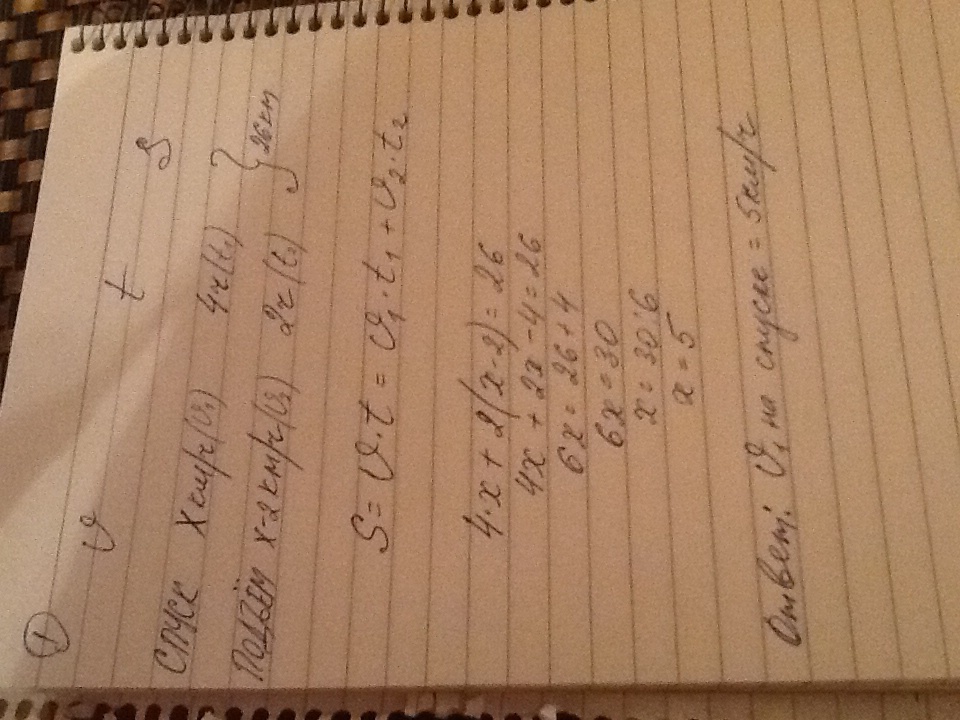 1
v t S
СПУСК x км/ч (v₁) 4ч (t₁)
ПОДЪЁМ x-2 км/ч (v₂) 2ч (t₂) } 26 км
S = v·t = v₁·t₁ + v₂·t₂
4·x + 2(x-2) = 26
4x + 2x - 4 = 26
6x = 26 + 4
6x = 30
x = 30:6
x = 5
Ответ: v₁ на спуске = 5 км/ч